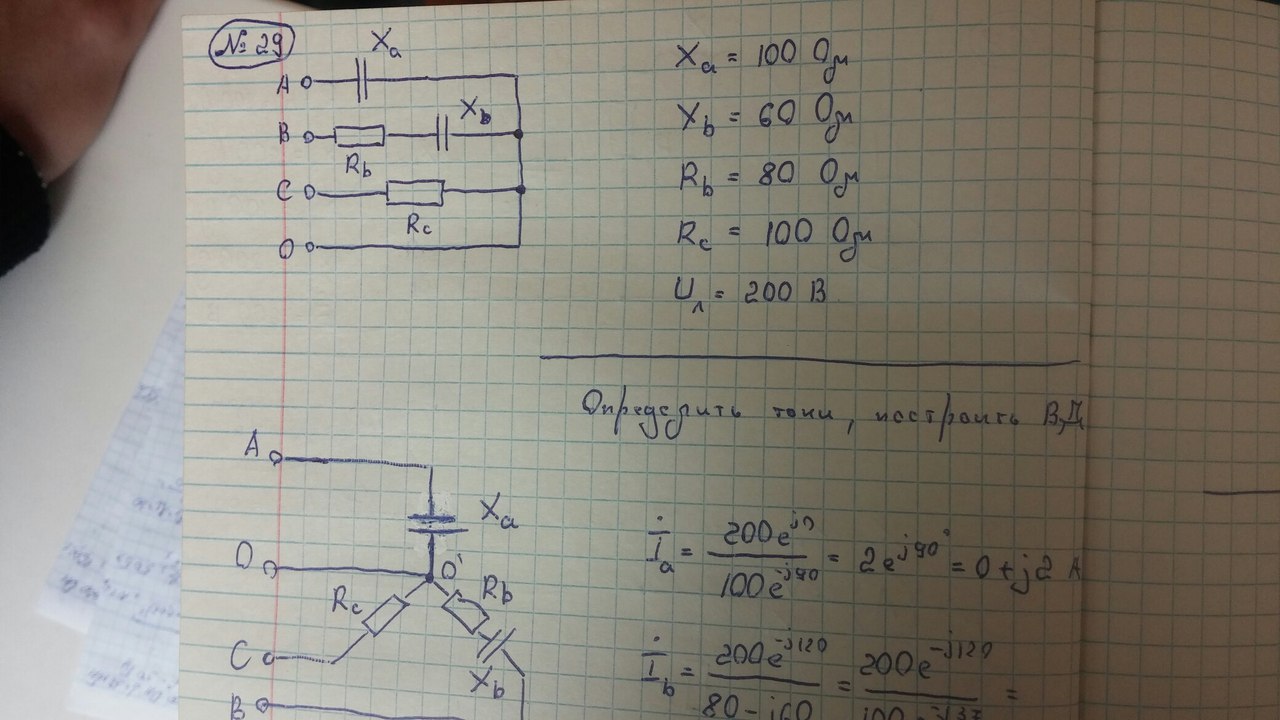 № 29
Xa
A
B
Xb
Rb
C
Rc
O
Xa = 100 Ом
Xb = 60 Ом
Rb = 80 Ом
Rc = 100 Ом
Uл = 200 В
Определить токи, построить ВД
A
Xa
O
O'
Rc
Rb
C
Xb
B
İa = 200e^j0 / 100e^-j90 = 2e^j90° = 0 + j2 A
İb = 200e^-j120 / 80 - j60 = 200e^-j120 / 100e^-j37 =